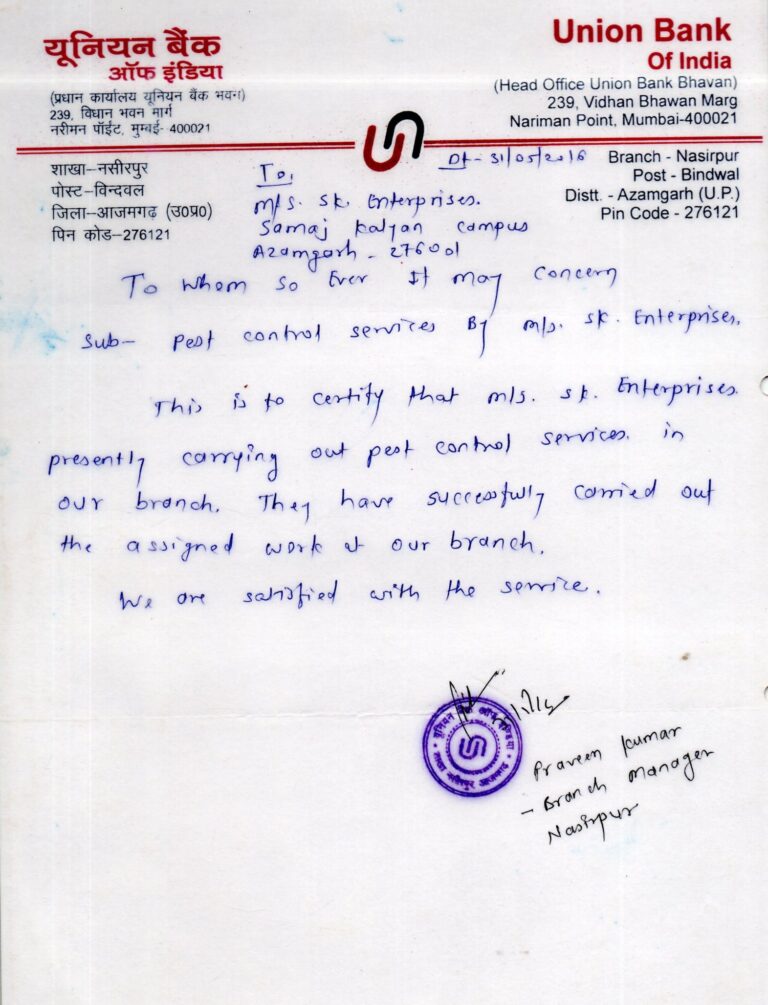 यूनियन बैंक
ऑफ इंडिया
(प्रधान कार्यालय यूनियन बैंक भवन)
239, विधान भवन मार्ग
नरीमन पॉईट, मुम्बई- 400021
Union Bank
Of India
(Head Office Union Bank Bhavan)
239, Vidhan Bhawan Marg
Nariman Point, Mumbai-400021
शाखा–नसीरपुर
पोस्ट–विन्दवल
जिला–आजमगढ़ (उ०प्र०)
पिन कोड–276121
Dt - 31/05/2016
Branch - Nasirpur
Post - Bindwal
Distt. - Azamgarh (U.P.)
Pin Code - 276121
To,
M/s. Sk. Enterprises.
Samaj Kalyan Campus
Azamgarh - 276001
To Whom So Ever It may Concern
Sub- Pest control services By M/s. Sk. Enterprises.
This is to certify that M/s. Sk. Enterprises.
presently carrying out pest control services. in
our branch. They have successfully carried out
the assigned work at our branch.
We are satisfied with the service.
यूनियन बैंक ऑफ इण्डिया
शाखा नसीरपुर आजमगढ़
Praveen Kumar
- Branch Manager
Nasirpur